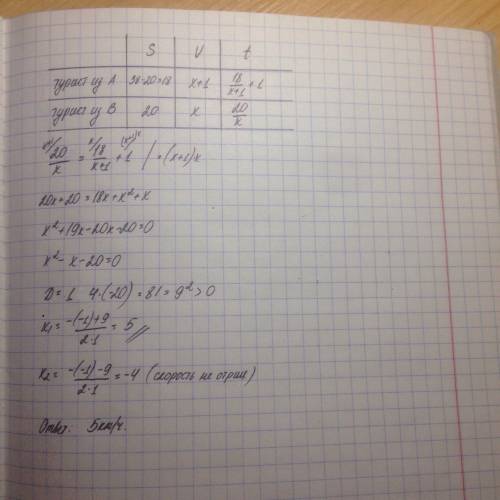 S V t
турист из А 38-20=18 x+1 18/(x+1) + 1
турист из В 20 x 20/x
20/x = 18/(x+1) + 1 | · (x+1)x
20x+20=18x+x²+x
x²+19x-20x-20=0
x²-x-20=0
D= 1 4·(-20)=81=9²>0
x₁= (-(-1)+9)/(2·1) = 5
x₂= (-(-1)-9)/(2·1) = -4 (скорость не отриц)
Ответ: 5км/ч.